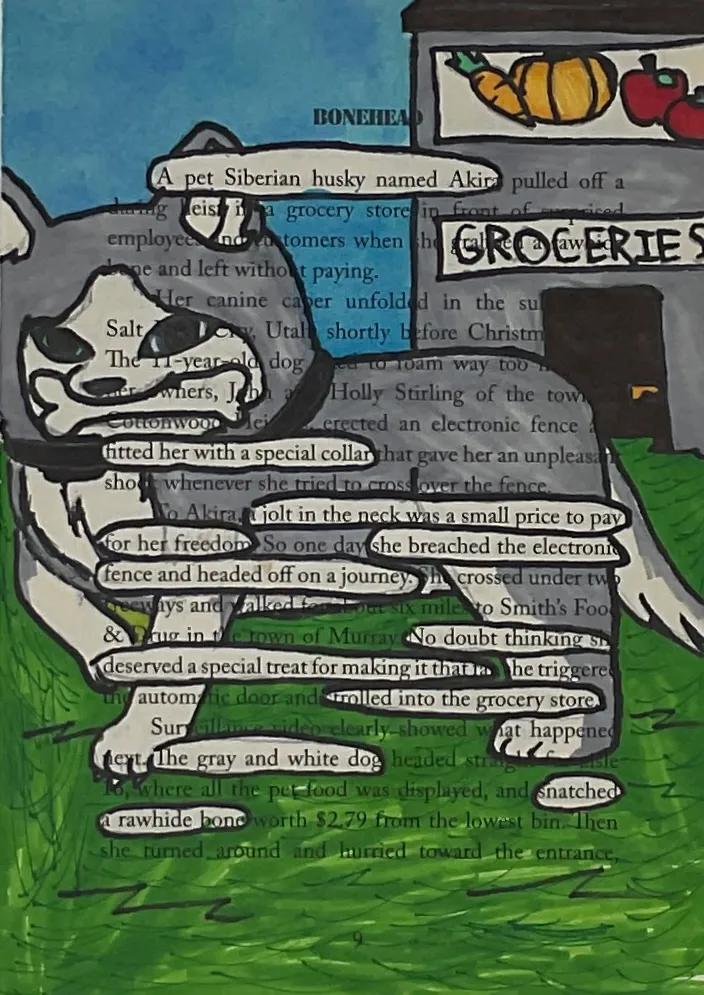 BONEHEAD
A pet Siberian husky named Akira pulled off a
daring heist in a grocery store in front of surprised
employees and customers when she grabbed a rawhide
GROCERIES
bone and left without paying.
Her canine caper unfolded in the
Salt City, Utah shortly before
The 11-year-old dog to roam way too
her owners, Holly Stirling of the town
Cottonwood erected an electronic fence
fitted her with a special collar that gave her an unpleasant
shock whenever she tried to cross over the fence.
To Akira, a jolt in the neck was a small price to pay
for her freedom. So one day she breached the electronic
fence and headed off on a journey. She crossed under two
freeways and walked for about six miles to Smith's Food
& Drug in the town of Murray. No doubt thinking she
deserved a special treat for making it that far, she triggered
the automatic door and strolled into the grocery store.
Surveillance video clearly showed what happened
next. The gray and white dog headed straight for aisle
16, where all the pet food was displayed, and snatched
a rawhide bone worth $2.79 from the lowest bin. Then
she turned around and hurried toward the entrance,
9